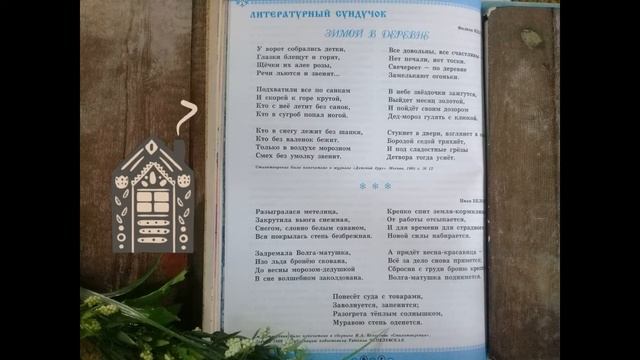 ЛИТЕРАТУРНЫЙ СУНДУЧОК
ЗИМОЙ В ДЕРЕВНЕ
У ворот собрались детки,
Глазки блещут и горят,
Щёчки их алее розы,
Речи льются и звенят...
Подхватили все по санкам
И скорей к горе крутой,
Кто с неё летит без санок,
Кто в сугроб попал ногой.
Кто в снегу лежит без шапки,
Кто без валенок бежит,
Только в воздухе морозном
Смех без умолку звенит.
Все довольны, все счастливы
Нет печали, нет тоски.
Свечереет — по деревне
Замелькают огоньки.
В небе звёздочки зажгутся,
Выйдет месяц золотой,
И пойдёт своим дозором
Дед-мороз гулять с клюкой.
Стукнет в двери, взглянет в
Бородой седой тряхнёт,
И под сладостные грёзы
Детвора тогда уснёт.
Стихотворение было напечатано в журнале Москва,
Иван
Разыгралася метелица,
Закрутила вьюга снежная,
Снегом, словно белым саваном,
Вся покрылась степь безбрежная.
Задремала Волга-матушка,
Изо льда бронёю скована,
До весны морозом-дедушкой
В сне волшебном заколдована.
Крепко спит земля-кормилица
От работы отсыпается,
И для времени для страдного
Новой силы набирается.
А придёт весна-красавица —
Всё за дело снова примется;
Сбросив с груди броню
Волга-матушка подымется.
Понесёт суда с товарами,
Заволнуется, запенится;
Разогрета тёплым солнышком,
Муравою степь оденется.